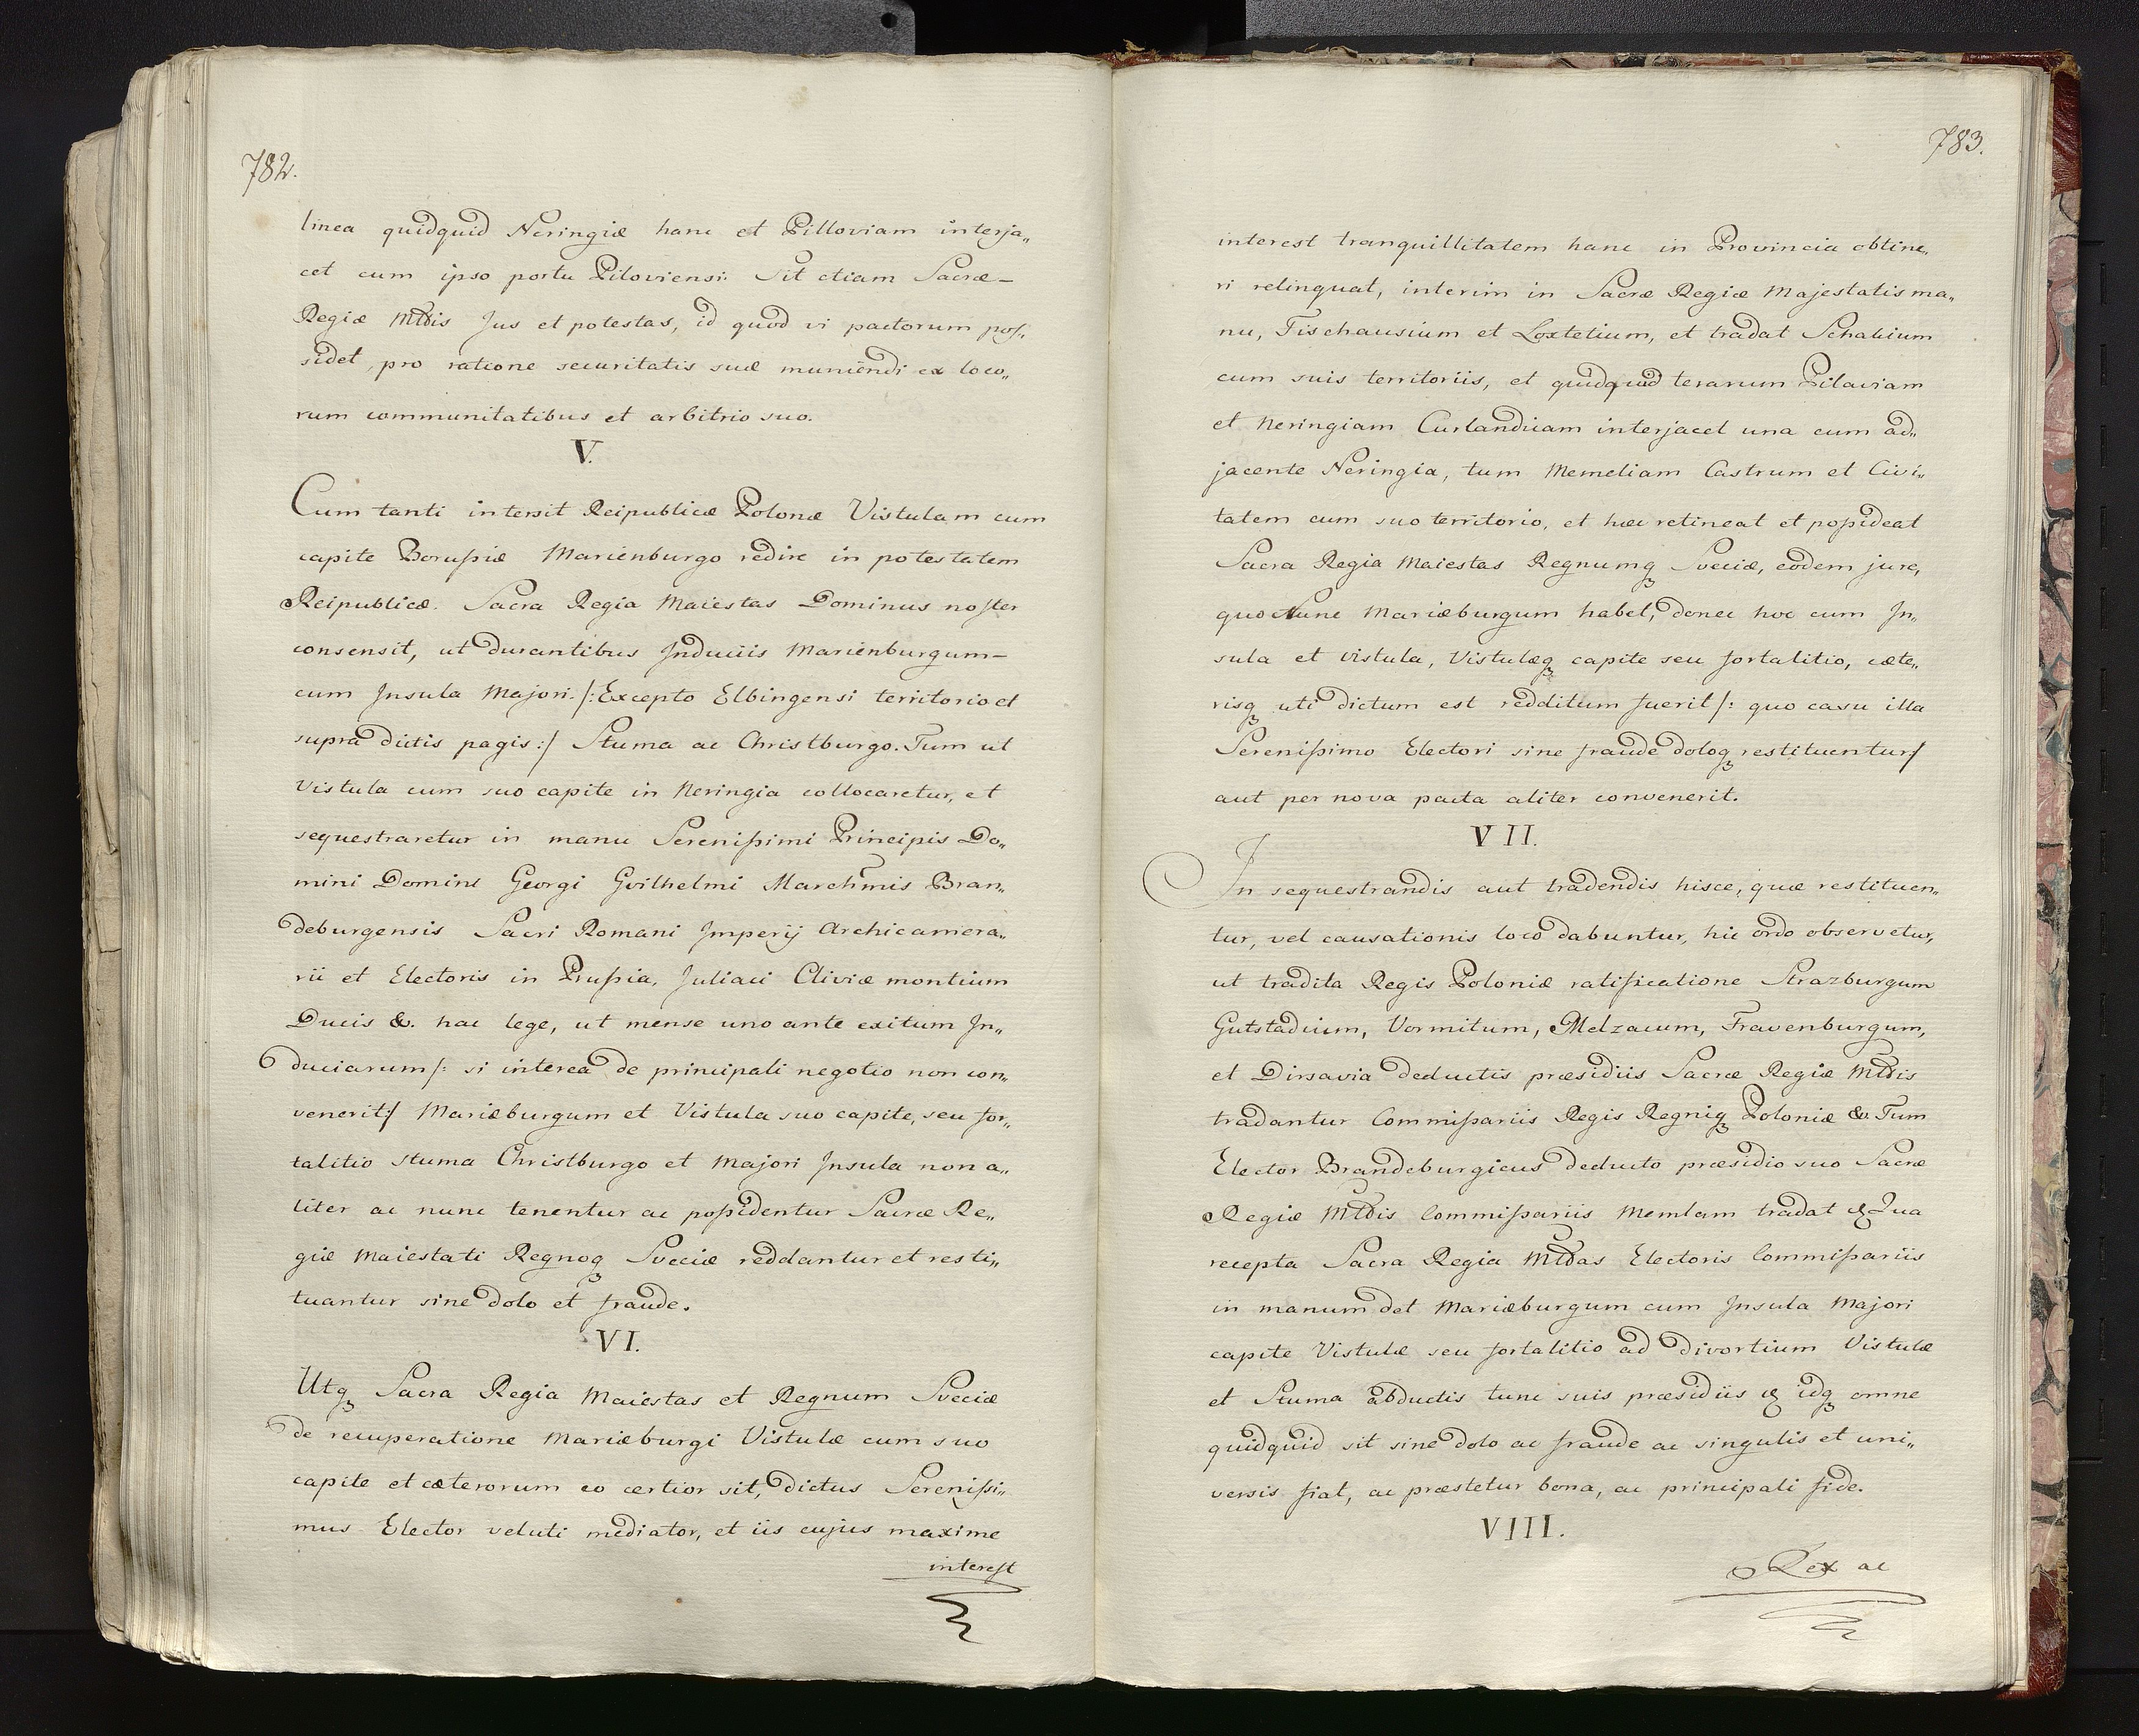 782.
linea quidquid Neringiæ hanc et Pilloviam interja„
cet cum ipso portu Piloviensi: Sit etiam Sacræ –
Regiæ Mttis Jus et potestas, id quod vi pactorum pos„
sidet, pro ratione securitatis suæ muniendi ex loco„
rum communitatibus et arbitrio suo.
V.
Cum tanti intersit Reipublicæ Polonæ Vistulam cum
capite Borussiæ Marienburgo redire in potestatem
Reipublicæ. Sacra Regia Maiestas Dominus noster
consensit, ut durantibus Induciis Marienburgum –
cum Insula Majori. /: Excepto Elbingensi territorio et
supra dictis pagis :/ Stuma ac Christburgo. Tum ut
Vistula cum suo capite in Neringia collocaretur, et
sequestraretur in manu Serenissimi Principis Do„
mini Domini Georgi Gvilhelmi Marchinis Bran„
deburgensis Sacri Romani Imperij Archicamera„
rii et Electoris in Prussia, Juliaci Cliviæ montium
Ducis &. hac lege, ut mense uno ante exitum In„
duciarum /: si interea de principali negotio non con„
venerit :/ Mariæburgum et Vistula suo capite, seu for„
talitio Stuma Christburgo et Majori Insula non a„
liter ac nunc tenentur ac possidentur Sacræ Re„
giæ Maiestati Regnoq Sveciæ reddantur et resti„
tuantur sine dolo et fraude.
VI.
Utq Sacra Regia Maiestas et Regnum Sveciæ
de recuperatione Mariæburgi Vistulæ cum suo
capite et cæterorum eo certior sit, dictus Serenissi„
mus Elector veluti mediator, et iis cujus maxime
interest
783.
interest tranquillitatem hanc in Provincia obtine„
ri relinquat, interim in Sacræ Regiæ Majestatis ma„
nu, Fischausium et Loxtetium, et tradat Schakium
cum suis territoriis, et quidquid terarum Pilaviam
et Neringiam Curlandicam interjacet una cum ad„
jacente Neringia, tum Memeliam Castrum et Civi„
tatem cum suo territorio, et hæc retineat et possideat
Sacra Regia Maiestas Regnumq Sveciæ, eodem jure,
quo Nunc Mariæburgum habet, donec hoc cum In„
sula et Vistula, Vistulæq capite seu fortalitio, cæte„
risq uti dictum est redditum fuerit /: quo casu illa
Serenissimo Electori sine fraude doloq restituentur :/
aut per nova pacta aliter convenerit.
VII.
In sequestrandis aut tradendis hisce, quæ restituen„
tur, vel causationis loco dabuntur, hic ordo observetur,
ut tradita Regis Poloniæ ratificatione Strazburgum
Gutstadium, Vormitum, Melzacum, Fravenburgum,
et Dirsavia deductis præsidiis Sacræ Regiæ Mttis
tradantur Commissariis Regis Regniq Poloniæ &. Tum
Elector Brandeburgicus deducto præsidio suo Sacræ
Regiæ Mttis Commissariis Memlam tradat & Qua
recepta Sacra Regia Mttas Electoris Commissariis
in manum det Mariæburgum cum Insula Majori
capite Vistulæ seu fortalitio ad divortium Vistulæ
et Stuma abductis tunc suis præsidiis & idq omne
quidquid sit sine dolo ac fraude ac singulis et uni„
versis fiat, ac præstetur bona, ac principali fide.
VIII.
Rex ac